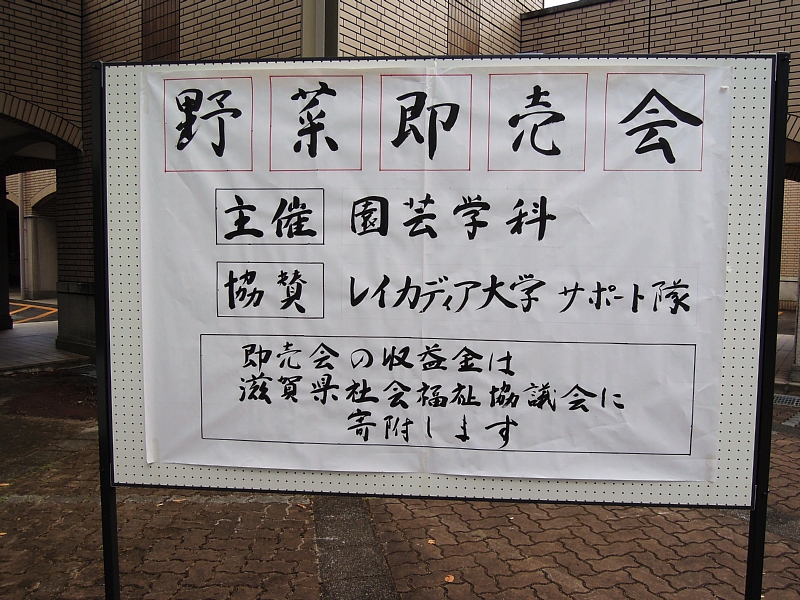 野菜即売会
主催 園芸学科
協賛 レイカディア大学 サポート隊
即売会の収益金は
滋賀県社会福祉協議会に
寄附します